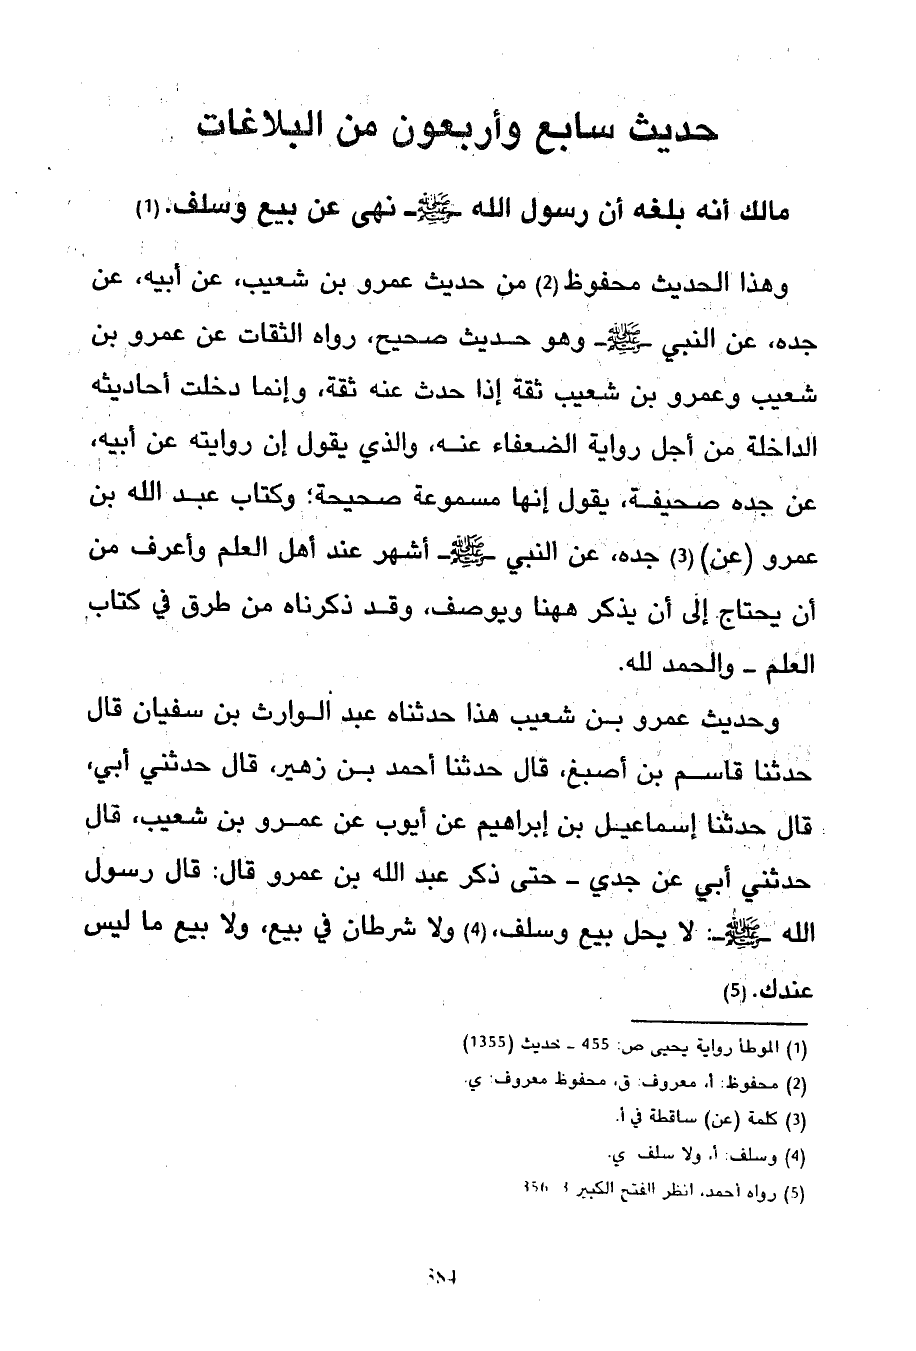 حديث سابع وأربعون من البلاغات
مالك أنه بلغه أن رسول الله ـﷺـ نهى عن بيع وسلف. (1)
وهذا الحديث محفوظ (2) من حديث عمرو بن شعيب، عن أبيه، عن
جده، عن النبي ـﷺـ وهو حديث صحيح، رواه الثقات عن عمرو بن
شعيب وعمرو بن شعيب ثقة إذا حدث عنه ثقة، وإنما دخلت أحاديثه
الداخلة من أجل رواية الضعفاء عنه، والذي يقول إن روايته عن أبيه،
عن جده صحيفة، يقول إنها مسموعة صحيحة؛ وكتاب عبد الله بن
عمرو (عن) (3) جده، عن النبي ـﷺـ أشهر عند أهل العلم وأعرف من
أن يحتاج إلى أن يذكر ههنا ويوصف، وقد ذكرناه من طرق في كتاب
العلم ـ والحمد لله.
وحديث عمرو بن شعيب هذا حدثناه عبد الوارث بن سفيان قال
حدثنا قاسم بن أصبغ، قال حدثنا أحمد بن زهير، قال حدثني أبي،
قال حدثنا إسماعيل بن إبراهيم عن أيوب عن عمرو بن شعيب، قال
حدثني أبي عن جدي ـ حتى ذكر عبد الله بن عمرو قال: قال رسول
الله ـﷺـ: لا يحل بيع وسلف، (4) ولا شرطان في بيع، ولا بيع ما ليس
عندك. (5)
(1) الموطأ رواية يحيى ص: 455 ـ حديث (1355)
(2) محفوظ: أ، معروف: ق، محفوظ معروف: ي.
(3) كلمة (عن) ساقطة في أ.
(4) وسلف: أ، ولا سلف ي.
(5) رواه أحمد، انظر الفتح الكبير